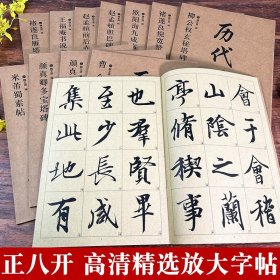 历代
柳公权玄秘塔碑
褚遂良倪宽赞
欧阳询九成宫
赵孟頫胆巴碑
赵孟頫前后赤
王福庵书说
褚遂良雁塔
颜真
曹
颜真卿多宝塔碑
米芾蜀素帖
會于會稽
山陰之蘭
亭脩稧事
也羣賢畢
至少長咸
集此地有
正八开 高清精选放大字帖